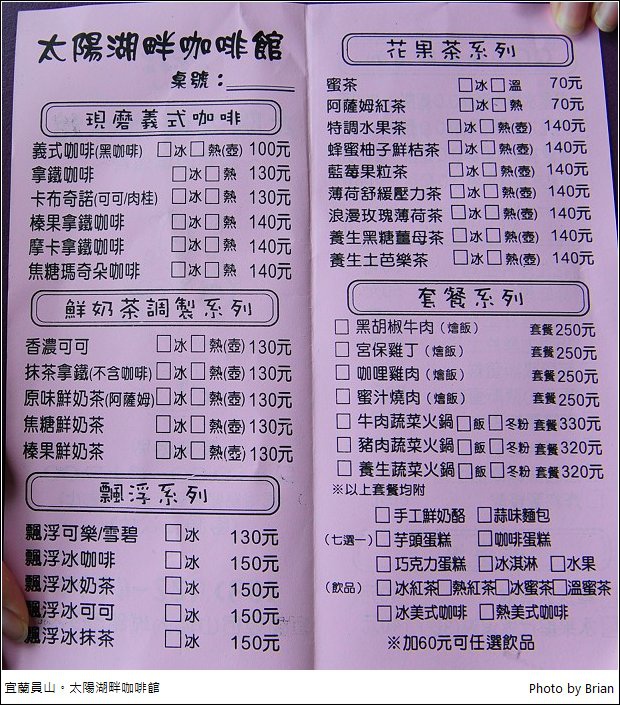 太陽湖畔咖啡館
桌號：
現磨義式咖啡
義式咖啡(黑咖啡) □冰□熱(壺) 100元
拿鐵咖啡 □冰□熱 130元
卡布奇諾(可可/肉桂) □冰□熱 130元
榛果拿鐵咖啡 □冰□熱 140元
摩卡拿鐵咖啡 □冰□熱 140元
焦糖瑪奇朵咖啡 □冰□熱 140元
鮮奶茶調製系列
香濃可可 □冰□熱(壺) 130元
抹茶拿鐵(不含咖啡) □冰□熱(壺) 130元
原味鮮奶茶(阿薩姆) □冰□熱(壺) 130元
焦糖鮮奶茶 □冰□熱(壺) 130元
榛果鮮奶茶 □冰□熱(壺) 130元
飄浮系列
飄浮可樂/雪碧 □冰 130元
飄浮冰咖啡 □冰 150元
飄浮冰奶茶 □冰 150元
飄浮冰可可 □冰 150元
飄浮冰抹茶 □冰 150元
花果茶系列
蜜茶 □冰□溫 70元
阿薩姆紅茶 □冰□熱 70元
特調水果茶 □冰□熱(壺) 140元
蜂蜜柚子鮮桔茶 □冰□熱(壺) 140元
藍莓果粒茶 □冰□熱(壺) 140元
薄荷舒緩壓力茶 □冰□熱(壺) 140元
浪漫玫瑰薄荷茶 □冰□熱(壺) 140元
養生黑糖薑母茶 □冰□熱(壺) 140元
養生土芭樂茶 □冰□熱(壺) 140元
套餐系列
□ 黑胡椒牛肉（燴飯） 套餐250元
□ 宮保雞丁（燴飯） 套餐250元
□ 咖哩雞肉（燴飯） 套餐250元
□ 蜜汁燒肉（燴飯） 套餐250元
□ 牛肉蔬菜火鍋 □飯□冬粉 套餐330元
□ 豬肉蔬菜火鍋 □飯□冬粉 套餐320元
□ 養生蔬菜火鍋 □飯□冬粉 套餐320元
※以上套餐均附
□手工鮮奶酪 □蒜味麵包
(七選一) □芋頭蛋糕 □咖啡蛋糕
□巧克力蛋糕 □冰淇淋 □水果
(飲品) □冰紅茶□熱紅茶□冰蜜茶□溫蜜茶
□冰美式咖啡 □熱美式咖啡
※加60元可任選飲品
宜蘭員山。太陽湖畔咖啡館
Photo by Brian